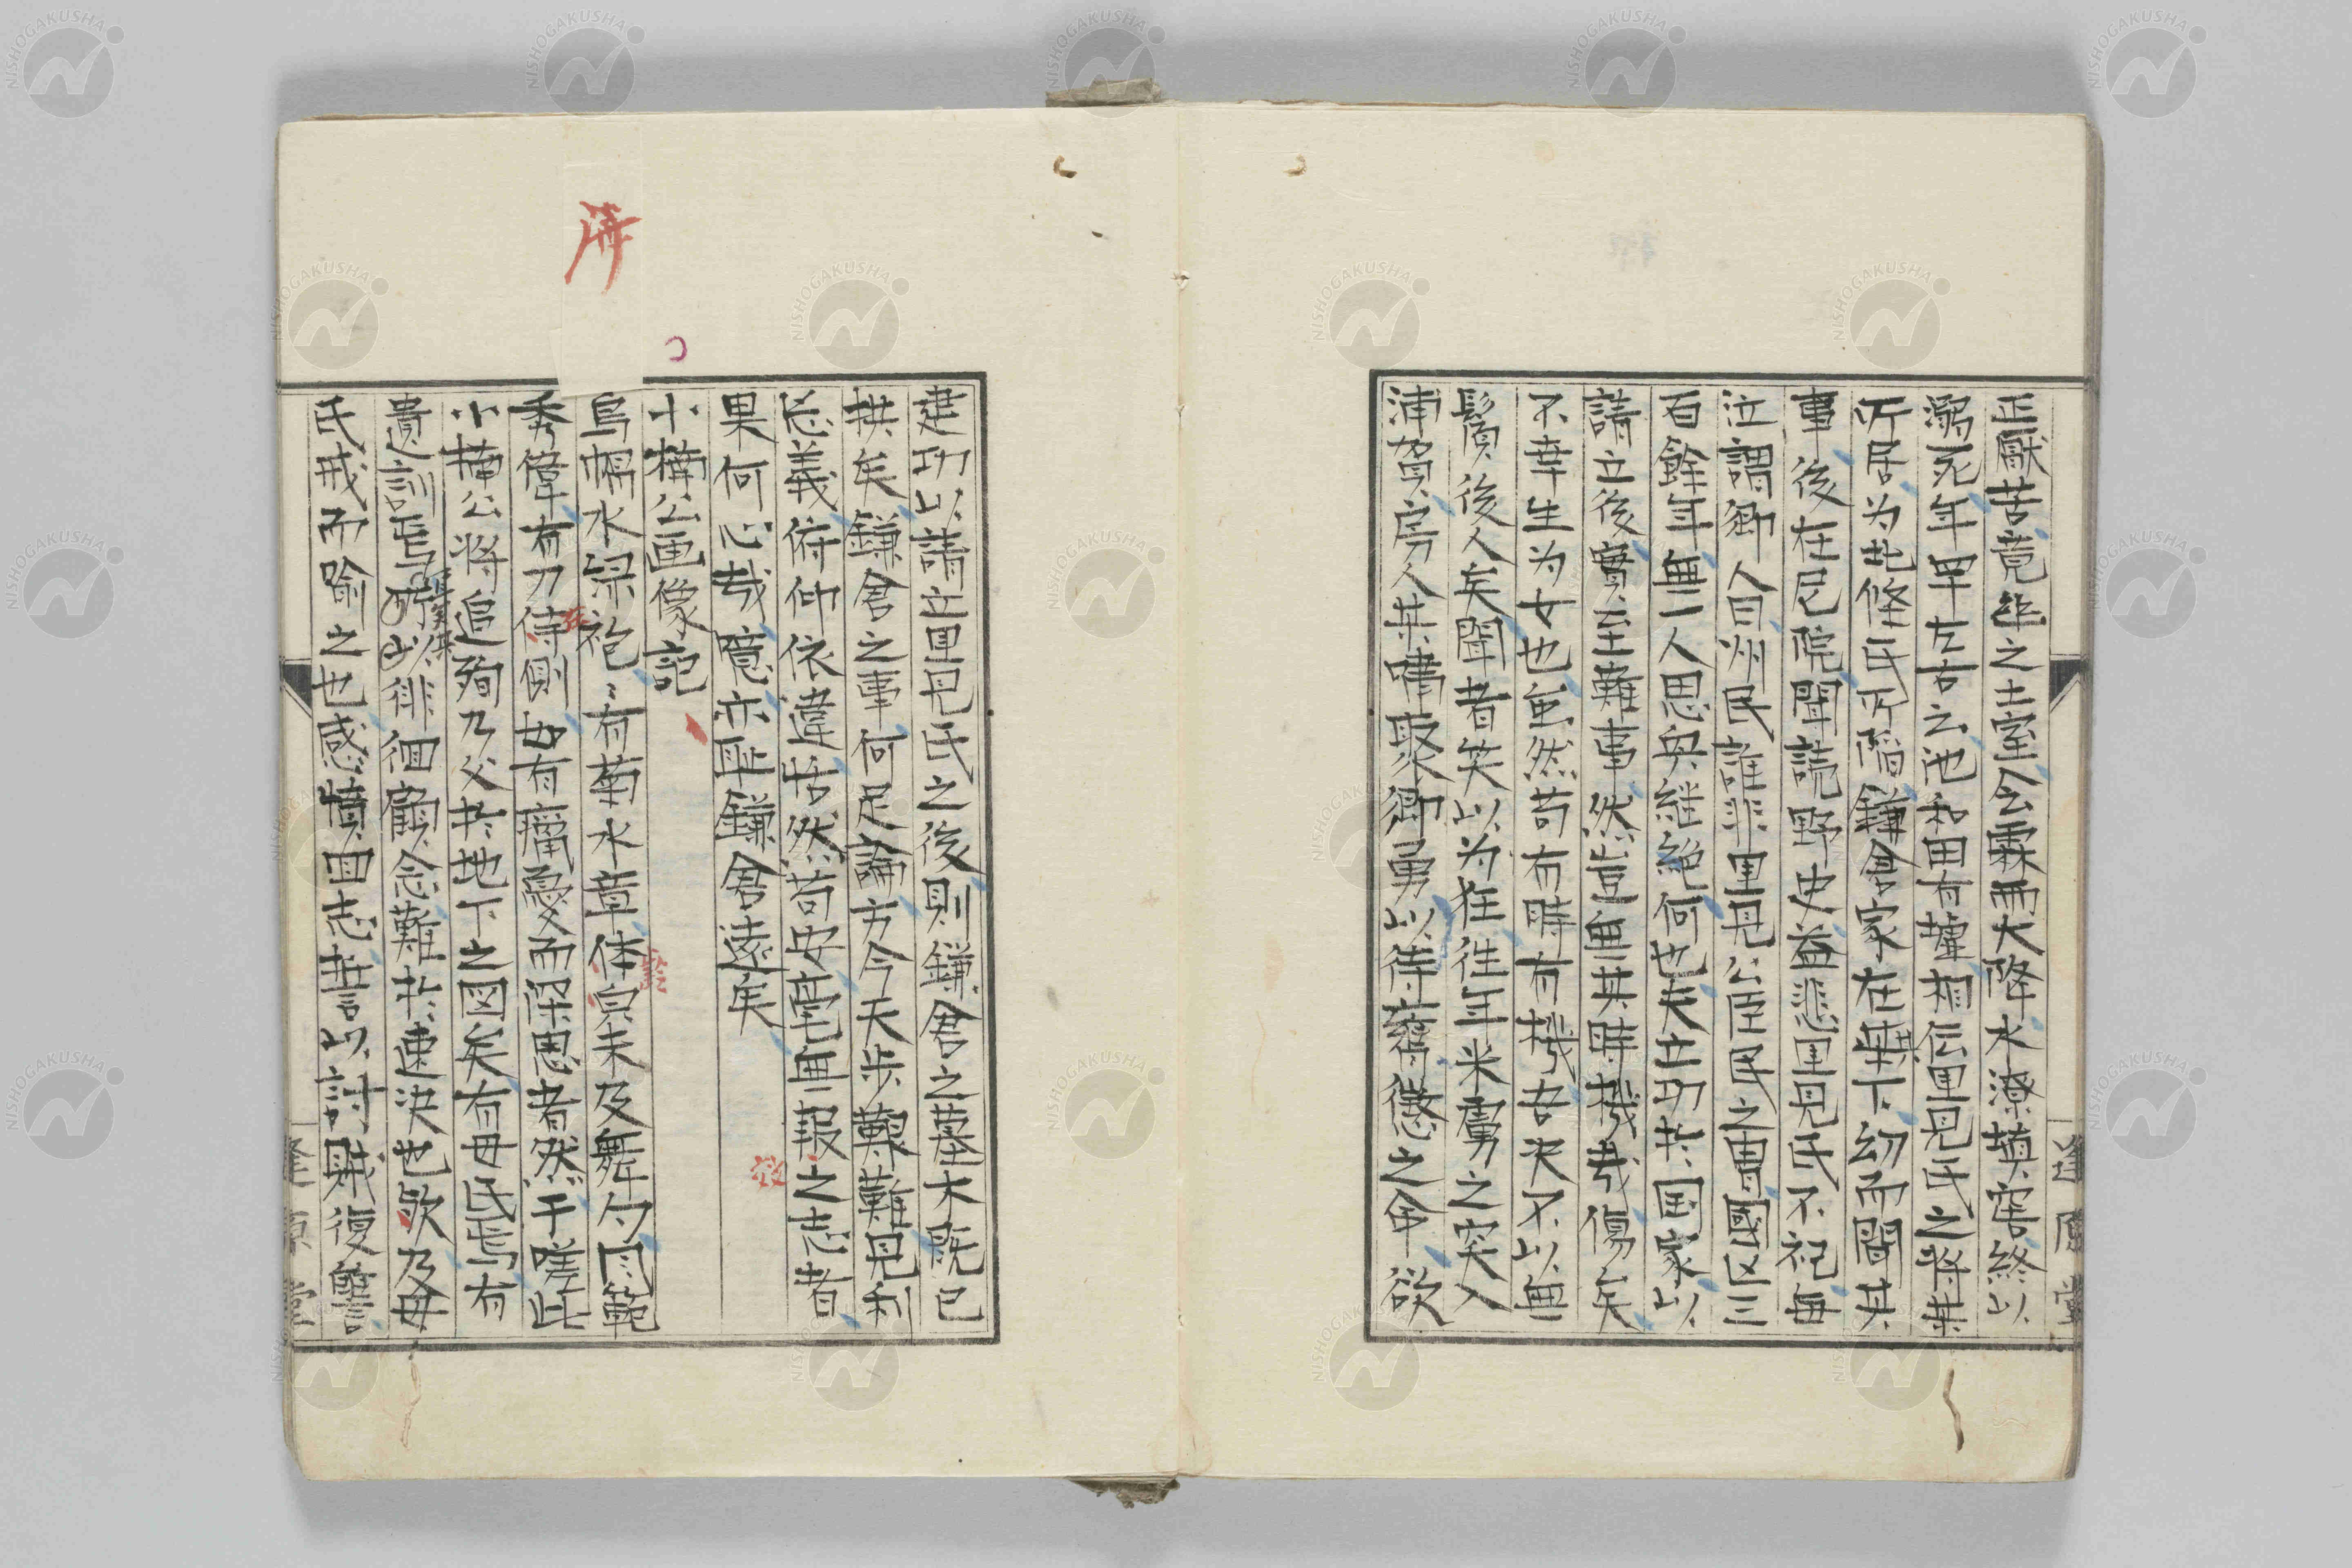 正厭苦竟坐之土室会霖雨大降水潦填窖終以
溺死年甲左右之池和田有蘀相伝里見氏之将某
所居为北條氏所陷鎌倉家在其下幼而聞其
事後在尼院閲読野史益悲里見氏不祀每
泣謂郷人曰州民誰非里見公臣民之冑國亡三
百餘年無一人思興継絶何也夫立功於国家以
請立後實至難事然豈無其時機哉傷矣
不幸生为女也虽然苟有時有機吾決不以無
鬚後人矣聞者笑以为狂往年米虜之突入
浦賀房人某嘯聚郷勇以待膺懲之命欲
建功以請立里見氏之後則鎌倉之墓木既已
拱矣鎌倉之事何足論方今天歩艱難見利
忘義俯仰依違恬然苟安毫無報之志者
效
果何心哉噫亦耻鎌倉遠矣
小楠公画像記
烏帽水綠袍、有菊水章体皃未及舞勺同範
秀偉有刀侍側也有癯憂而深思者然于嗟此
小楠公将追殉乃父於地下之図矣有母氏焉有
遺訓焉所以徘徊顧念難於速決也欤及母
氏戒而喻之也感憤回志誓以討賊復讐
逢原堂